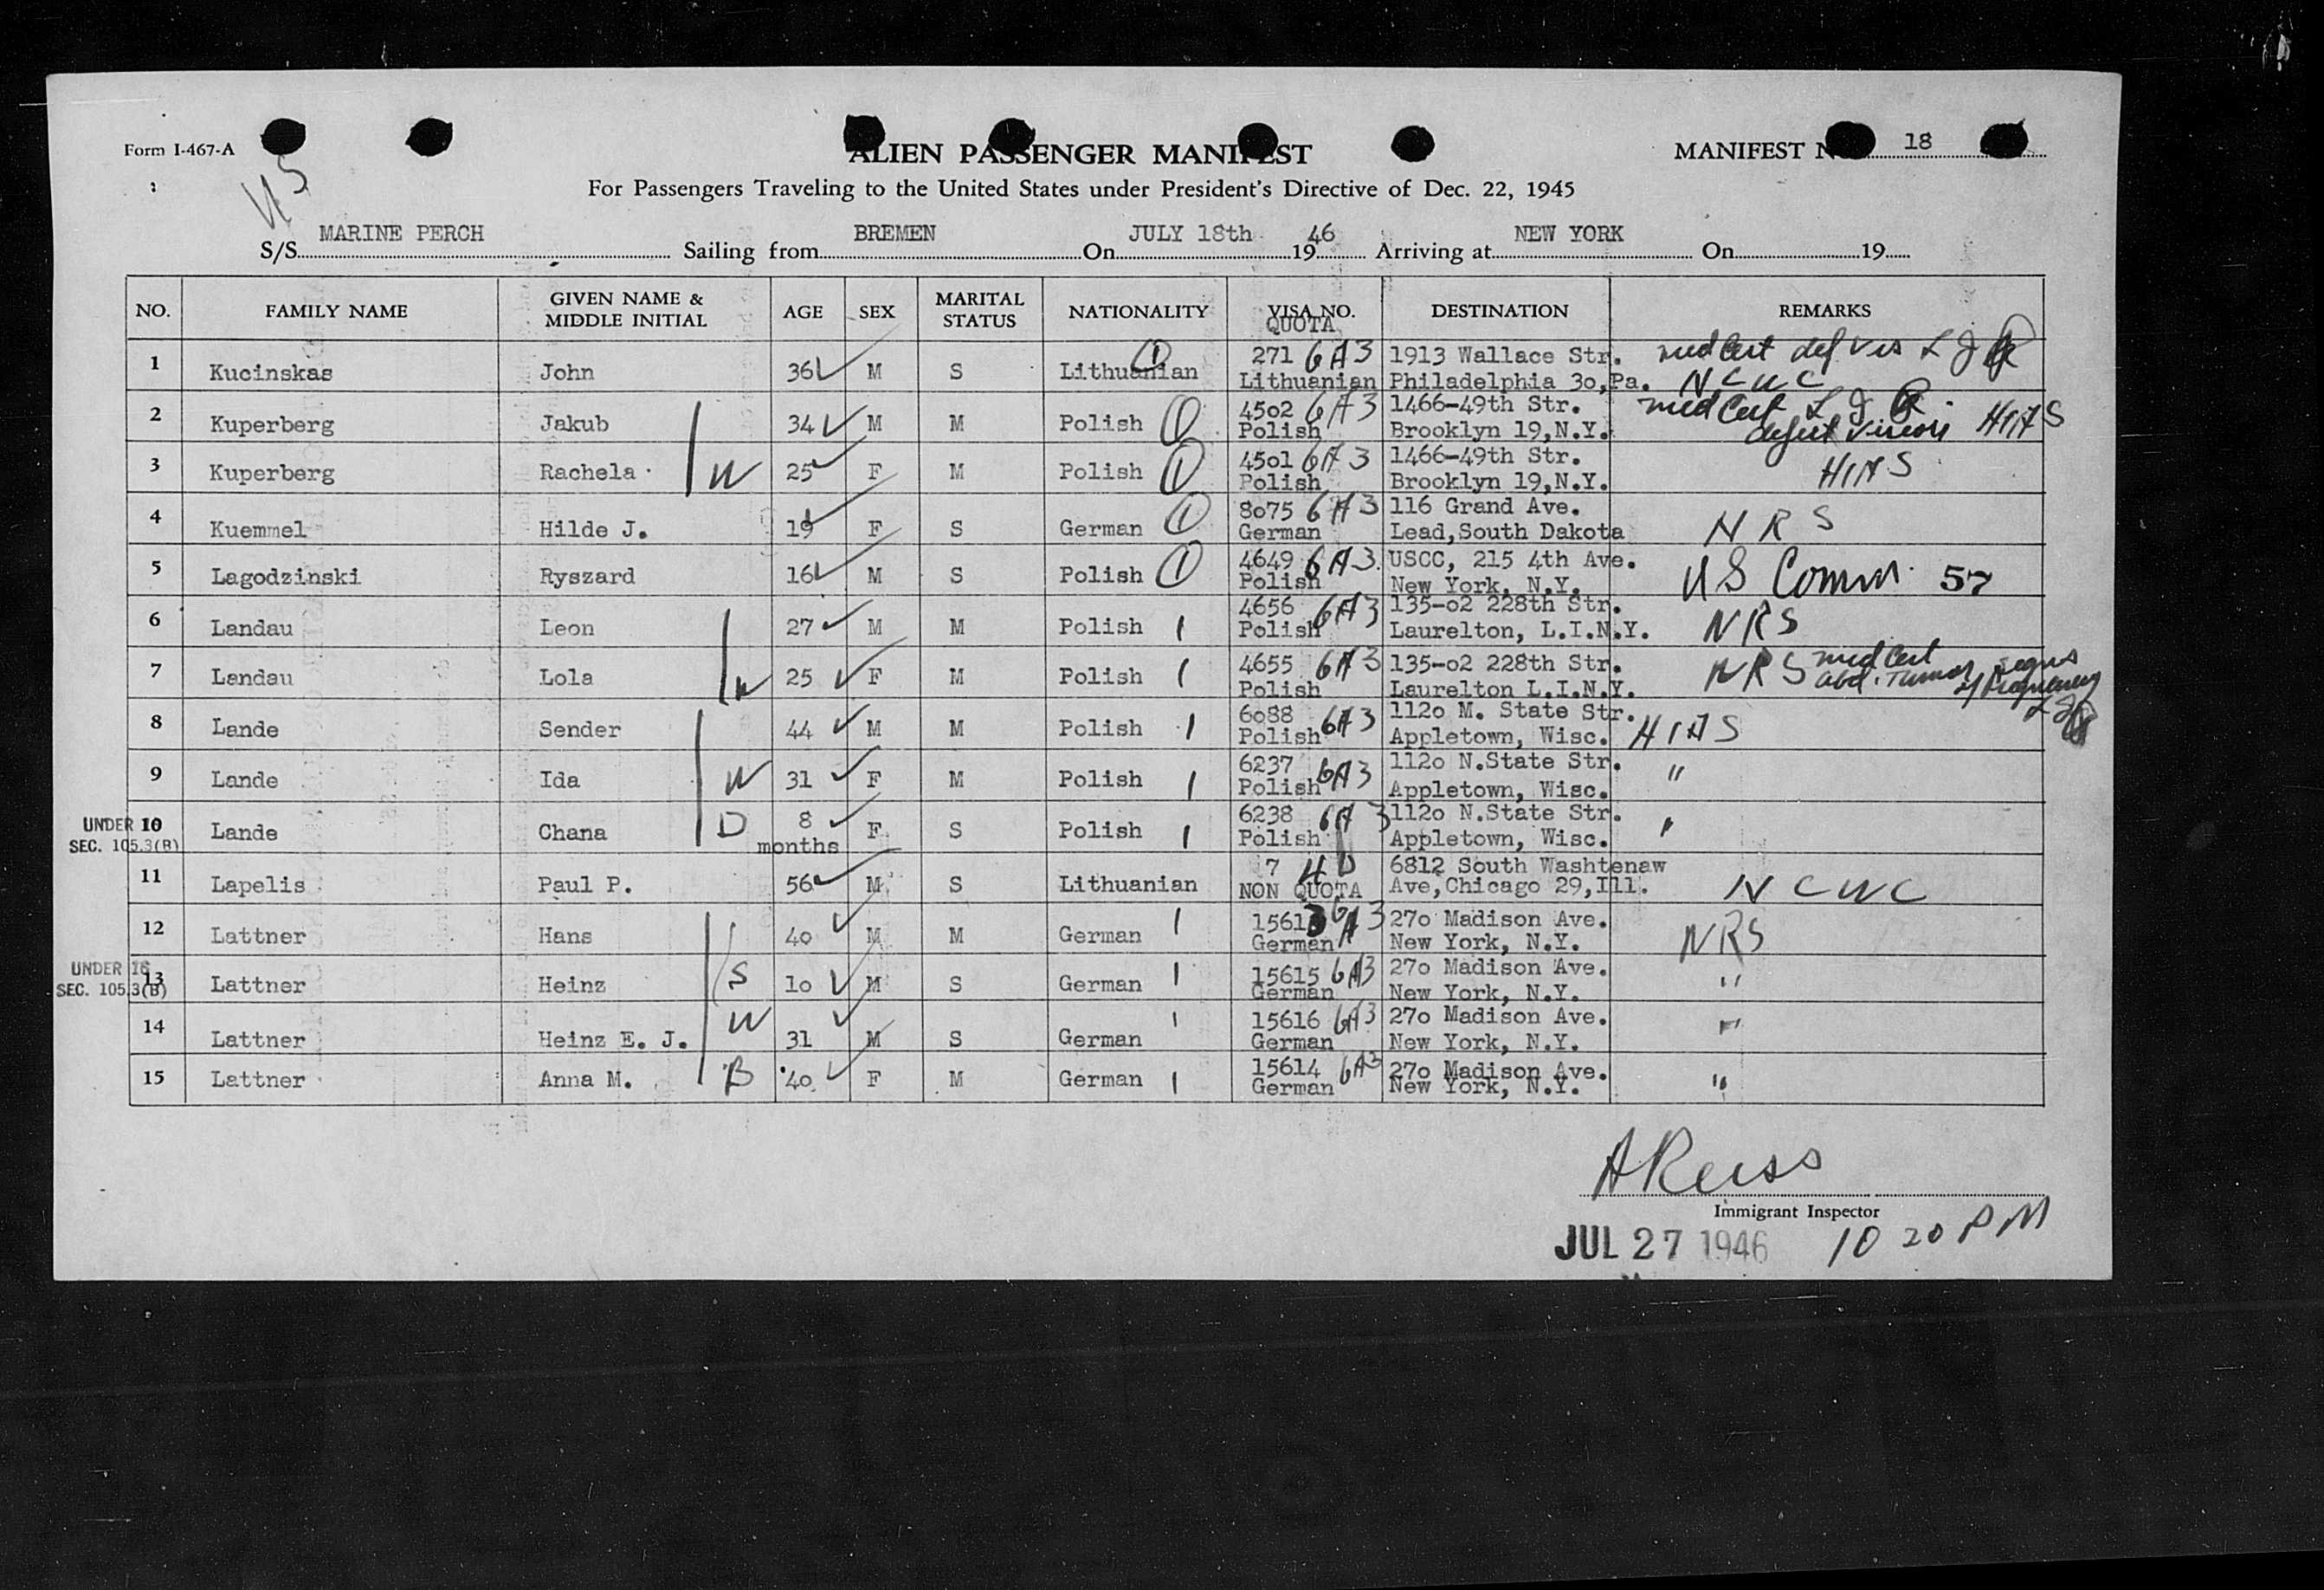 Form I-467-A
ALIEN PASSENGER MANIFEST
MANIFEST N 18
For Passengers Traveling to the United States under President's Directive of Dec. 22, 1945
S/S MARINE PERCH Sailing from BREMEN On JULY 18th 1946 Arriving at NEW YORK On 19
NO. FAMILY NAME GIVEN NAME & MIDDLE INITIAL AGE SEX MARITAL STATUS NATIONALITY VISA NO. QUOTA DESTINATION REMARKS
1 Kucinskas John 36 M S Lithuanian 271 6A3 Lithuanian 1913 Wallace Str. Philadelphia 3o,Pa. med Cert def vis L J NCWC
2 Kuperberg Jakub 34 M M Polish 45o2 6A3 Polish 1466-49th Str. Brooklyn 19,N.Y. med Cert L J defect vision HIAS
3 Kuperberg Rachela W 25 F M Polish 45o1 6A3 Polish 1466-49th Str. Brooklyn 19,N.Y. HIAS
4 Kuemmel Hilde J. 19 F S German 8o75 6A3 German 116 Grand Ave. Lead,South Dakota NRS
5 Lagodzinski Ryszard 16 M S Polish 4649 6A3 Polish USCC, 215 4th Ave. New York, N.Y. US Comm. 57
6 Landau Leon 27 M M Polish 4656 6A3 Polish 135-o2 228th Str. Laurelton, L.I.N.Y. NRS
7 Landau Lola W 25 F M Polish 4655 6A3 Polish 135-o2 228th Str. Laurelton L.I.N.Y. NRS med Cert abd. Tumor signs of pregnancy
8 Lande Sender 44 M M Polish 6o88 6A3 Polish 112o M. State Str. Appletown, Wisc. HIAS
9 Lande Ida W 31 F M Polish 6237 6A3 Polish 112o N.State Str. Appletown, Wisc. "
UNDER 16 SEC. 105.3(B) 10 Lande Chana D 8 months F S Polish 6238 6A3 Polish 112o N.State Str. Appletown, Wisc. "
11 Lapelis Paul P. 56 M S Lithuanian 7 4D NON QUOTA 6812 South Washtenaw Ave,Chicago 29,Ill. NCWC
12 Lattner Hans 4o M M German 15613 6A3 German 27o Madison Ave. New York, N.Y. NRS
UNDER 16 SEC. 105.3(B) 13 Lattner Heinz S 1o M S German 15615 6A3 German 27o Madison Ave. New York, N.Y. "
14 Lattner Heinz E. J. W 31 M S German 15616 6A3 German 27o Madison Ave. New York, N.Y. "
15 Lattner Anna M. B 4o F M German 15614 6A3 German 27o Madison Ave. New York, N.Y. "
A Reiss
Immigrant Inspector
JUL 27 1946 10 20 PM